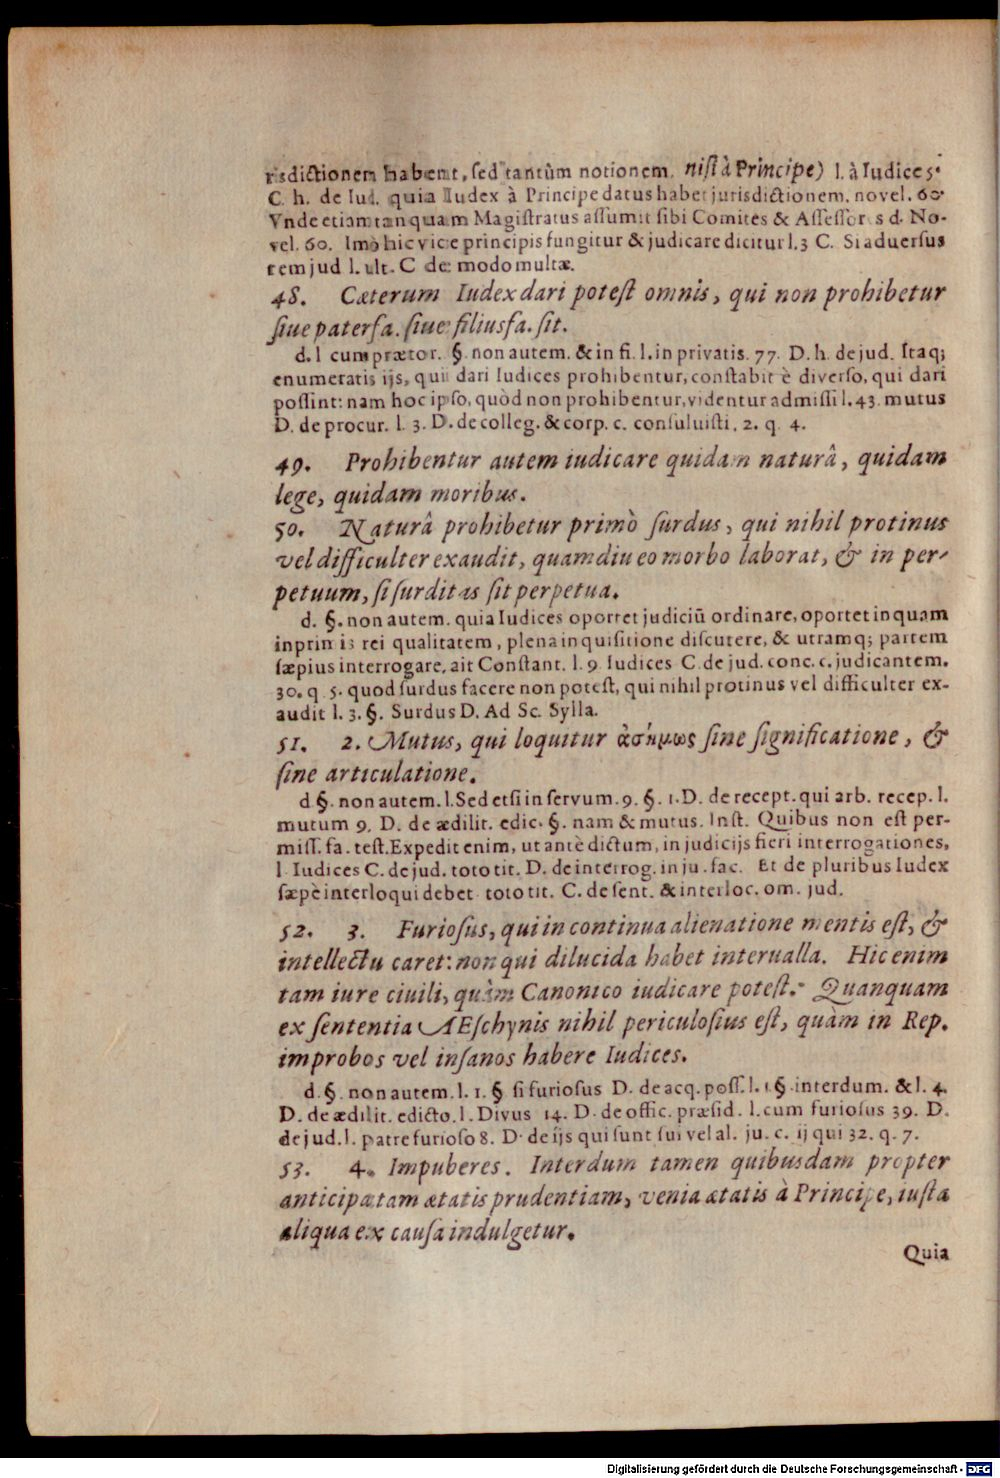 risdictionem habent, sed tantùm notionem. nisi à Principe) l. à Iudices
C. h. de Iud. quia Iudex à Principe datus habet jurisdictionem. novel. 60
Vnde etiam tanquam Magistratus assumit sibi Comites & Assessores d. No-
vel. 60. Imò hic vice principis fungitur & judicare dicitur l. 3 C. Si aduersus
rem jud l. ult. C de modo multæ.
48. Cæterum Iudex dari potest omnis, qui non prohibetur
siue paterfa. siue filiusfa. sit.
d. l cum prætor. §. non autem. & in fi. l. in privatis. 77. D. h. de jud. Itaq;
enumeratis ijs, qui dari Iudices prohibentur, constabit è diverso, qui dari
possint: nam hoc ipso, quòd non prohibentur, videntur admissi l. 43. mutus
D. de procur. l. 3. D. de colleg. & corp. c. consuluisti. 2. q. 4.
49. Prohibentur autem iudicare quidam naturâ, quidam
lege, quidam moribus.
50. Naturâ prohibetur primò surdus, qui nihil protinus
vel difficulter exaudit, quamdiu eo morbo laborat, & in per-
petuum, si surditas sit perpetua.
d. §. non autem. quia Iudices oportet judiciū ordinare, oportet inquam
inprimis rei qualitatem, plena inquisitione discutere, & utramq; partem
sæpius interrogare, ait Constant. l. 9. Iudices C. de jud. conc. c. judicantem.
30. q. 5. quod surdus facere non potest, qui nihil protinus vel difficulter ex-
audit l. 3. §. Surdus D. Ad Sc. Sylla.
51. 2. Mutus, qui loquitur ἀσήμως sine significatione, &
sine articulatione.
d §. non autem. l. Sed etsi in servum. 9. §. 1. D. de recept. qui arb. recep. l.
mutum 9. D. de ædilit. edic. §. nam & mutus. Inst. Quibus non est per-
miss. fa. test. Expedit enim, ut antè dictum, in judicijs fieri interrogationes,
l Iudices C. de jud. toto tit. D. de interrog. in ju. fac. Et de pluribus Iudex
sæpè interloqui debet toto tit. C. de sent. & interloc. om. jud.
52. 3. Furiosus, qui in continua alienatione mentis est, &
intellectu caret: non qui dilucida habet interualla. Hic enim
tam iure ciuili, quàm Canonico iudicare potest. Quanquam
ex sententia AEschynis nihil periculosius est, quàm in Rep.
improbos vel insanos habere Iudices.
d. §. non autem. l. 1. § si furiosus D. de acq. poss. l. 1 §. interdum. & l. 4.
D. de ædilit. edicto. l. Divus 14. D. de offic. præsid. l. cum furiosus 39. D.
de jud. l. patre furioso 8. D. de ijs qui sunt sui vel al. ju. c. ij qui 32. q. 7.
53. 4. Impuberes. Interdum tamen quibusdam propter
anticipatam ætatis prudentiam, venia ætatis à Principe, iusta
aliqua ex causa indulgetur.
Quia
Digitalisierung gefördert durch die Deutsche Forschungsgemeinschaft - DFG